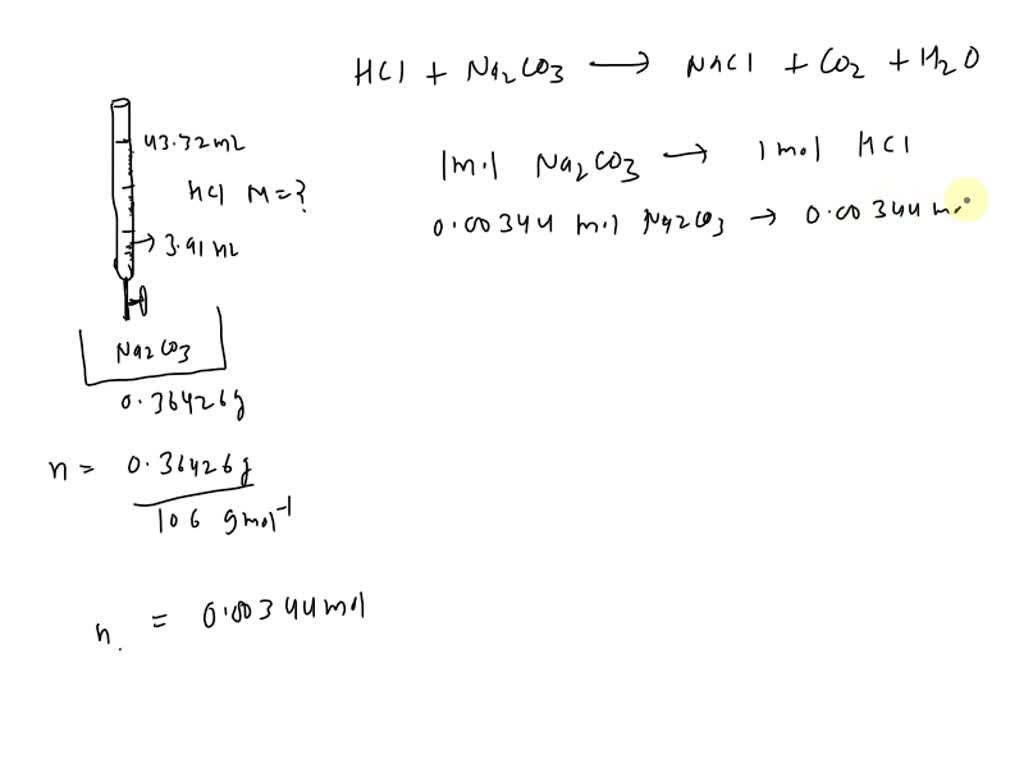 HCl + Na2CO3 → NaCl + CO2 + H2O
43.32mL
HCl M=?
→ 3.91 mL
Na2CO3
0.36426g
n = 0.36426g
106 gmol-1
n. = 0.00344mol
1mol Na2CO3 → 1 mol HCl
0.00344 mol Na2CO3 → 0.00344 m